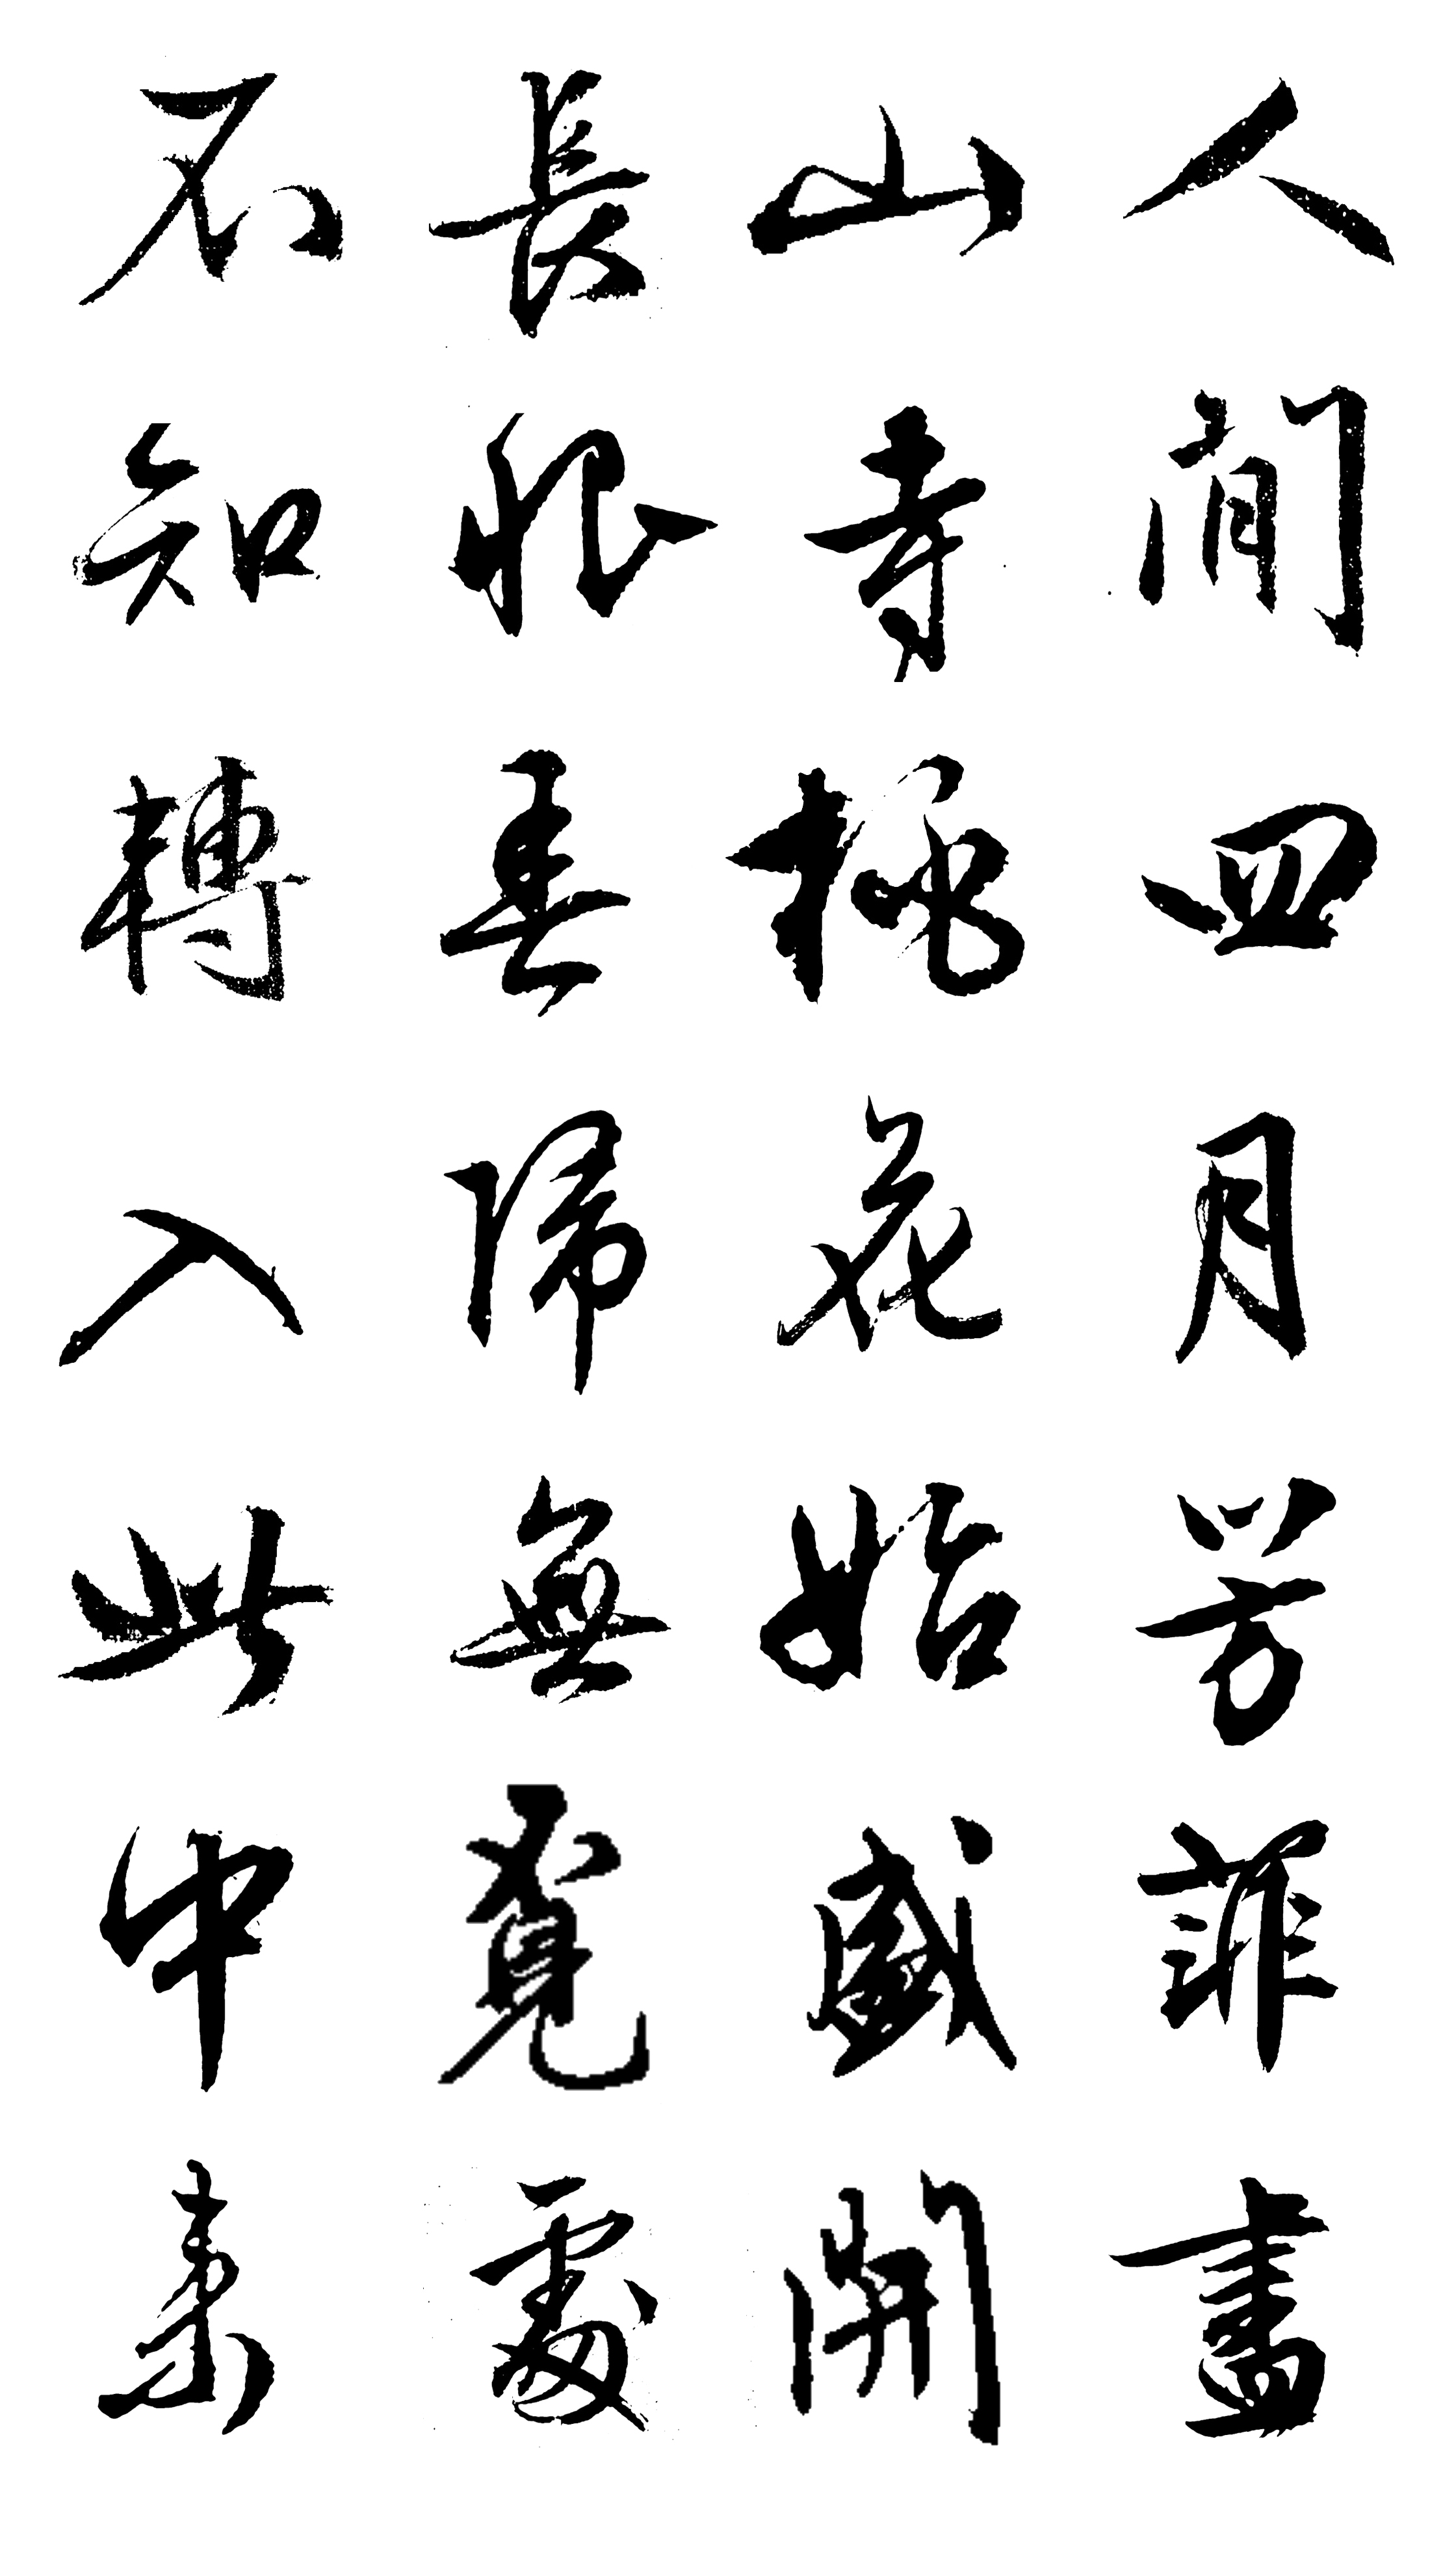 人間四月芳菲盡
山寺桃花始盛開
長恨春歸無覓處
不知轉入此中來